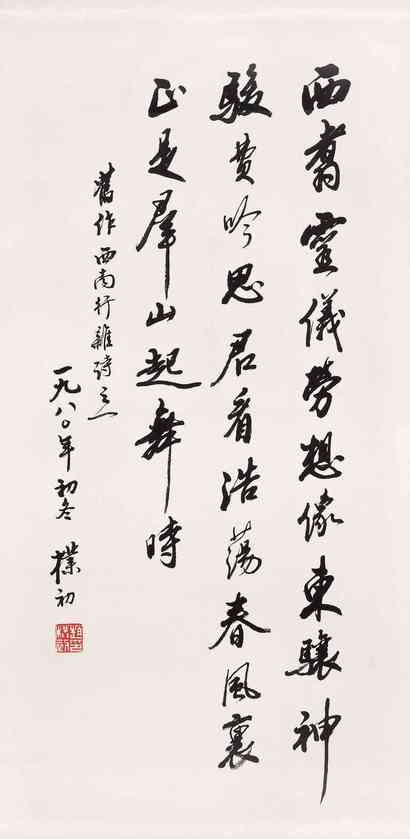 西翥灵儀勞想像東驤神
駿費吟思君看浩蕩春風裏
正是羣山起舞時
舊作西南行雜詩之一
一九八〇年初冬 樸初